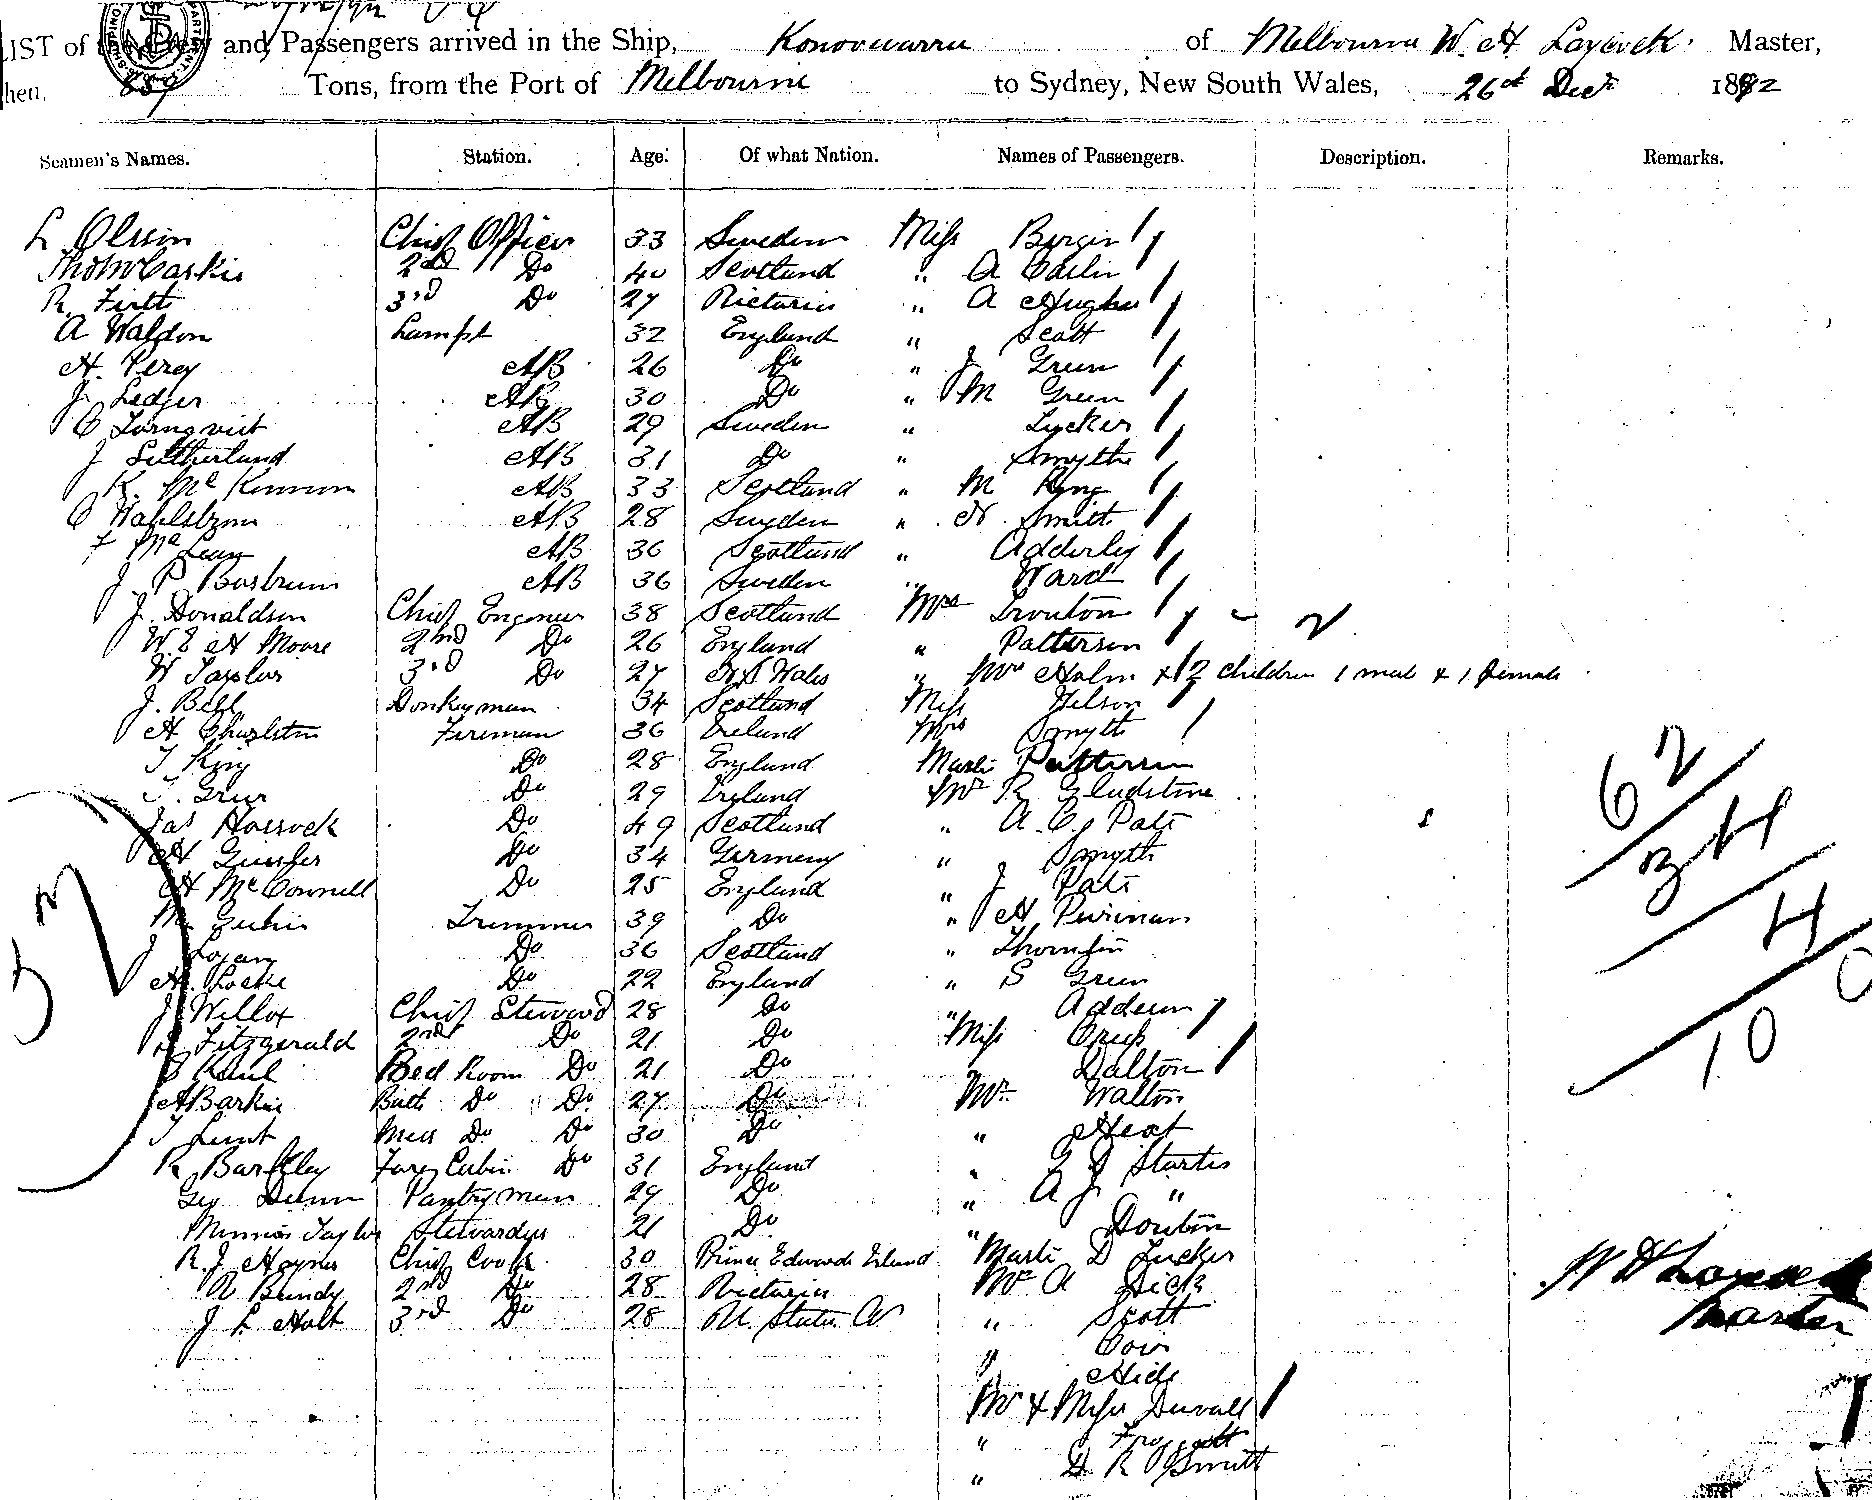 LIST of the Crew and Passengers arrived in the Ship, Konoowarra of Melbourne W. H. Laycock Master,
Tons, from the Port of Melbourne to Sydney, New South Wales, 26th Decr 1892
Seamen's Names. Station. Age. Of what Nation. Names of Passengers. Description. Remarks.
L Olsson Chief Officer 33 Sweden Miss Bergin
Thos McCaskie 2nd Do 40 Scotland " A Carlin
R. Firth 3rd Do 27 Victoria " A Hughes
A Waldon Lampt 32 England " Scott
H. Percy AB 26 Do " J Green
J. Ledger AB 30 Do " M Green
C Tornqvist AB 29 Sweden " Tucker
J Sutherland AB 31 Do " Smythe
K. Mc Kinnon AB 33 Scotland " M King
C Wahlstrom AB 28 Sweden " N. Smith
Mc Lean AB 36 Scotland " Adderley
J. P. Bostrum AB 36 Sweden " Ward
J. Donaldson Chief Engineer 38 Scotland Mrs Trouton
W. E H Moore 2nd Do 26 England " Patterson
W Taylor 3rd Do 27 N S Wales " Mrs Holm & 2 children 1 male & 1 female
J. Bell Donkeyman 34 Scotland Miss Wilson
H Charlston Fireman 36 Ireland Mrs Smyth
T King Do 28 England Mastr Patterson
T. Greer Do 29 Ireland Mr R Gladstone
Jas Hossock Do 49 Scotland " A. C. Pate
H Gunther Do 34 Germany " Smyth
H McConnell Do 25 England " J Pate
M Guhin Trimmer 39 Do " H Periman
J Logan Do 36 Scotland " Thornton
H. Locke Do 22 England " S Green
J Willox Chief Steward 28 Do "
Fitzgerald 2nd Do 21 Do Miss
Bed Room Do 21 Do " Dalton
A Barkin Do Do 27 Do Mr Walton
T Lunt Mess Do Do 30 Do "
R. Barkley Fore Cabin Do 31 England "
Geo Dunn Pantryman 29 Do " A J "
Minnie Taylor Stewardess 21 Do "
R. J. Haynes Chief Cook 30 Prince Edwards Island Mastr D Tucker
A Bundy 2nd Do 28 Victoria Mr A Dick
J L Holt 3rd Do 28 U. States A " Scott
"
" Hide
Mr & Misses Duvall
" Froggatt
" D R Smith
62
34
4
10
W H Laycock
Master